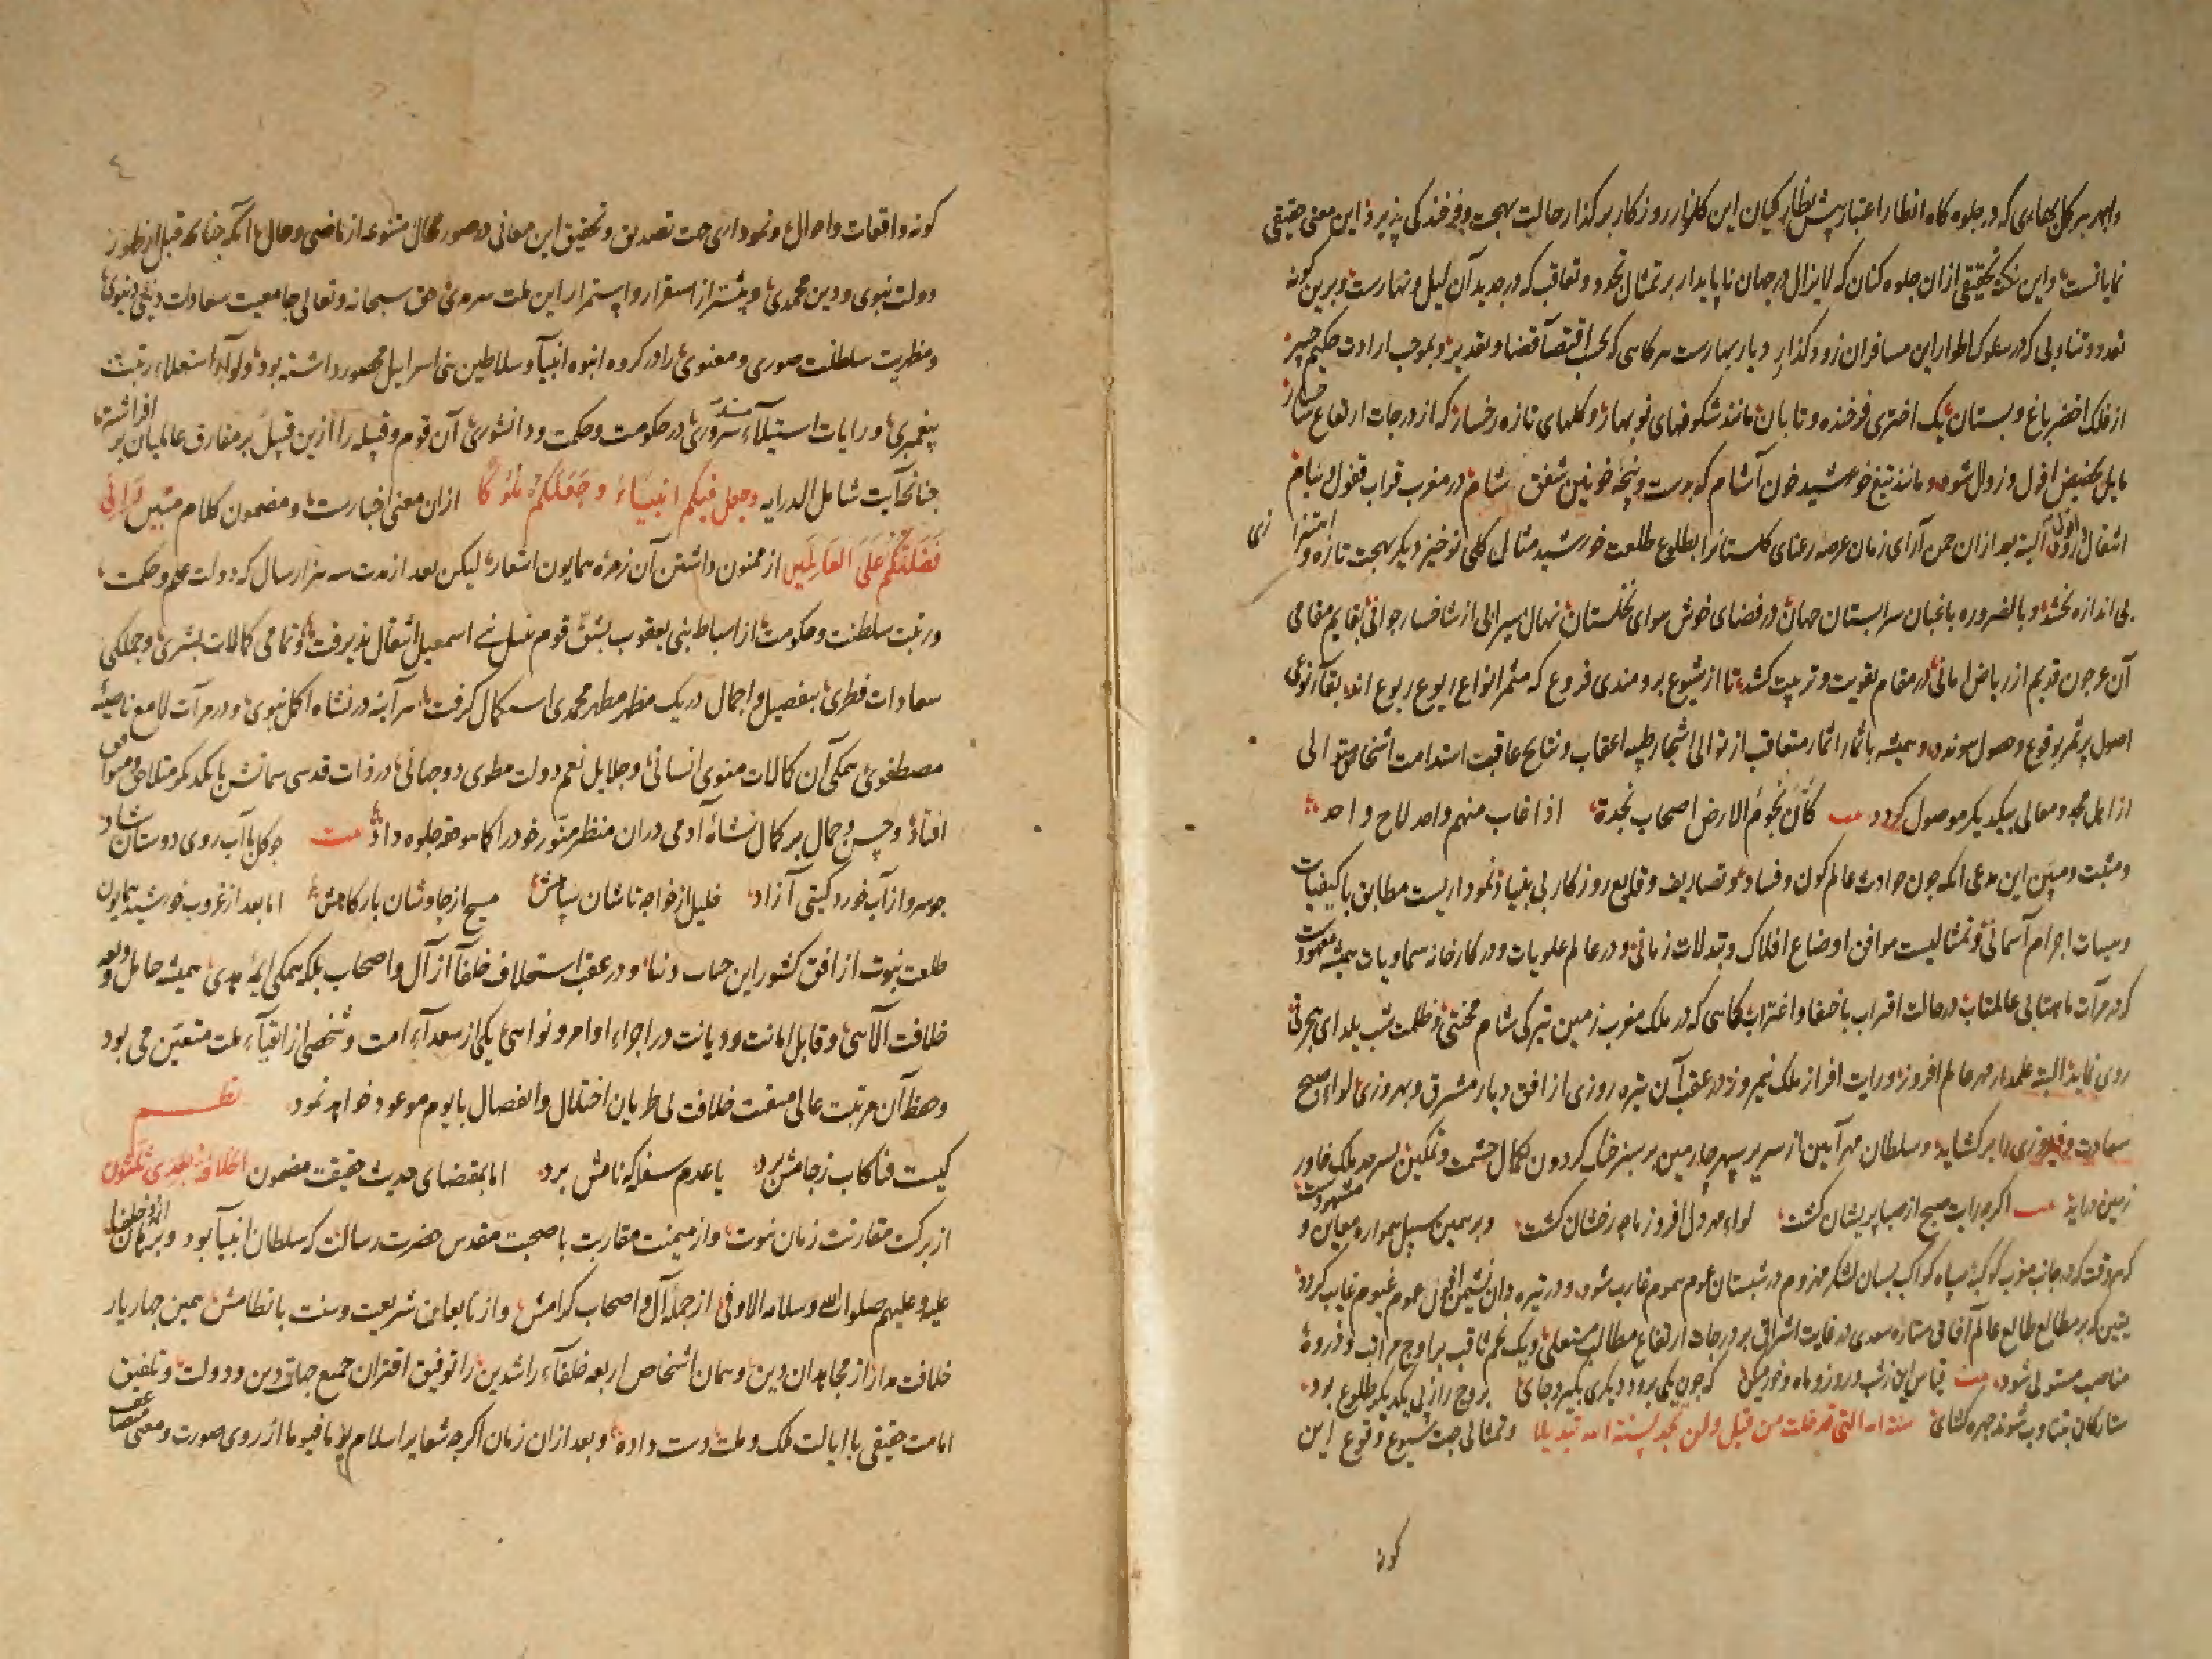 نمایانست و این نکته تحقیقی ازان جلوه کنان که لایزال در جهان ناپایدار بر تمثال تجدد و تعاقب که در جدید آن لیل و نهارست و برین کونه
تعدد و تناوبی که در سلوک اطوار این مسافران زود کذار دیار بهارست هر کاهی که بحسب اقتضآ قضا و تقدیر و بموجب ارادت حکیم خبیر
از فلک اخضر باغ و بستان یک اختری فرخنده و تابان مانند شکوفهای نوبهار و کلهای تازه رخسار که از درجات ارتفاع
مایل حضیض افول و زوال شود و مانند تیغ خورشید خون آشام که بدست و پنجه خونین شفق شام در مغرب قراب قفول و نیام
البته بعد ازان چمن آرای زمان عرصه رعنای کلستانرا بطلوع طلعت خورشید مثالی کلی نوخیز دیکر بهجت تازه و
بی اندازه بخشد و بالضروره باغبان سرابستان جهان در فضای خوش هوای نخلستان نهال سیرابی از شاخسار جوانی بقایم مقامی
آن عرجون قدیم از ریاض امانی در مقام تقویت و تربیت کشد تا از شیوع برومندی فروع که مثمر انواع
اصول پر ثمر بوقوع وصول موندد و همیشه باثمار متعاقب از توالی اشجار طیبه اعقاب و نتایج عاقبت استدامت اشخاص متوالی
از اهل مجد و معالی بیکدیکر موصول کردد بیت کأن نجوم الارض اصحاب نجدة اذا غاب منهم واحد لاح واحد
و مثبت و مبین این مدعی انکه چون حوادث عالم کون و فساد و تصاریف وقایع روزکار بی بنیاد نموداریست مطابق با کیفیات
و هیئات اجرام آسمانی و تمثالیست موافق اوضاع افلاک و تبدلات زمانی و در عالم علویات و در کارخانه سماویات همیشه معهودست
که در مرآت ماهتابی عالمتاب در حالت اقتراب باخفا و اغتراب کاهی که در ملک مغرب زمین تیرکی شام محنتی و ظلمت شب یلدای هجرتی
روی نماید البته علمدار مهر عالم افروز و رایت افراز ملک نیمروز در عقب آن تیره روزی از افق دیار مشرق و بهروزی لواء صبح
سعادت و فیروزی را برکشاید و سلطان مهر آیین از سریر سپهر چارمین بر سبز خنک کردون بکمال حشمت و تمکین بسرحد ملک خاور
زمین دراید بیت اکر چه رایت صبح از صبا پریشان کشت لواء مهر دل افروز ماه رخشان کشت و بر همین سبیل همواره معاین و مشهودست
که هر وقت که در جانب مغرب کوکبه سپاه کواکب بسان لشکر مهزوم در شبستان غموم هموم غارب شود و در تیره دان نشیمن افول عموم غیوم غایب کردد
یقین که بر مطالع طالع عالم آفاقی ستاره سعدی در غایت اشراق بر درجات ارتفاع مطالب مستعلی و یک نجم ثاقب بر اوج مراتب و ذروهٔ
مناصب مستولی شود بیت قیاس این ز شب و روز و ماه و خور میکن که چون یکی برود دیکری بکیرد جای بروج را ز پی یکدیکر طلوع بود
ستارکان بتناوب شوند چهره کشای سنة الله التی قد خلت من قبل و لن تجد لسنة الله تبدیلا و تمثالی جهت شیوع وقوع این
کونه
٤
کونه واقعات و احوال و نموداری جهت تصدیق و تحقیق این معانی در صور محال متنوعه از ماضی و حال انکه چنانکه قبل از ظهور
دولت نبوی و دین محمدی و پیشتر از استقرار و استمرار این ملت سرمدی حق سبحانه و تعالی جامعیت سعادت دینی و دنیوی
و مظهریت سلطنت صوری و معنوی را در کروه انبوه انبیآ و سلاطین بنی اسراییل محصور داشته بود و لواء استعلاء رتبت
پیغمبری و رایات استیلاء مسند سروری در حکومت و حکمت و دانشوری آن قوم و قبیله را ازین قبیل بر مفارق عالمیان بر افراشته
چنانچه آیت شامل الدرایه وجعل فیکم انبیاء و جعلکم ملوکا ازان معنی اخبارست و مضمون کلام مبین و انی
فضلتکم علی العالمین از ممنون داشتن آن زمره همایون اشعار لیکن بعد از مدت سه هزار سال که دولت علم و حکمت
و رتبت سلطنت و حکومت از اسباط بنی یعقوب بشق قوم بنی اسمعیل انتقال پذیرفت و تمامی کمالات بشری و جملکی
سعادات فطری بتفصیل و اجمال در یک مظهر مطهر محمدی استکمال کرفت هر آینه در نشاه اکمل نبوی و در مرآت لامع ناصیهٔ
مصطفوی همکی آن کمالات معنوی انسانی و جلایل نعم دولت مطوی دو جهانی در ذات قدسی سماتش با یکدیکر متلاقی و
افتاد و حسن و جمال بر کمال نشاهٔ آدمی دران منظر منور خود را کما هو حقه جلوه داد بیت چو کل با آب روی دوستان شاد
چو سرو از آب خورد کیتی آزاد خلیل از خواجه تاشان سپاهش مسیح از چاوشان بارکاهش اما بعد از غروب خورشید همایون
طلعت نبوت از افق کشور این جهان دنیا و در عقب استخلاف خلفآ از آل و اصحاب بلکه همکی ایمهٔ هدی همیشه حامل ودیعه
خلافت آلاهی و قابل امانت و دیانت در اجراء اوامر و نواهی یکی از سعدآء امت و شخصی از اتقیآء ملت متعین می بود
و حفظ آن مرتبت عالی منقبت خلافت بی طریان اختلال و انفصال تا یوم موعود خواهد نمود نظم
کیست فنا کاب ز جامش برد یا عدم سفله که نامش برد اما بمقتضای حدیث حقیقت مضمون الخلافة بعدی ثلثون
از برکت مقارنت زمان نبوت و از میمنت مقاربت با صحبت مقدس حضرت رسالت که سلطان انبیآ بود
علیه و علیهم صلوات الله و سلامه الاوفی از جمله آل و اصحاب کرامش و از تابعان شریعت و سنت بانظامش همین چهار یار
خلافت مدار از مجاهدان دین و همان اشخاص اربعه خلفآء راشدین را توفیق اقتران جمیع جهات دین و دولت و تلفیق
امامت حقیقی با ایالت ملک و ملت دست داده و بعد ازان زمان اکر چه شعایر اسلام یوما فیوما از روی صورت و معنی